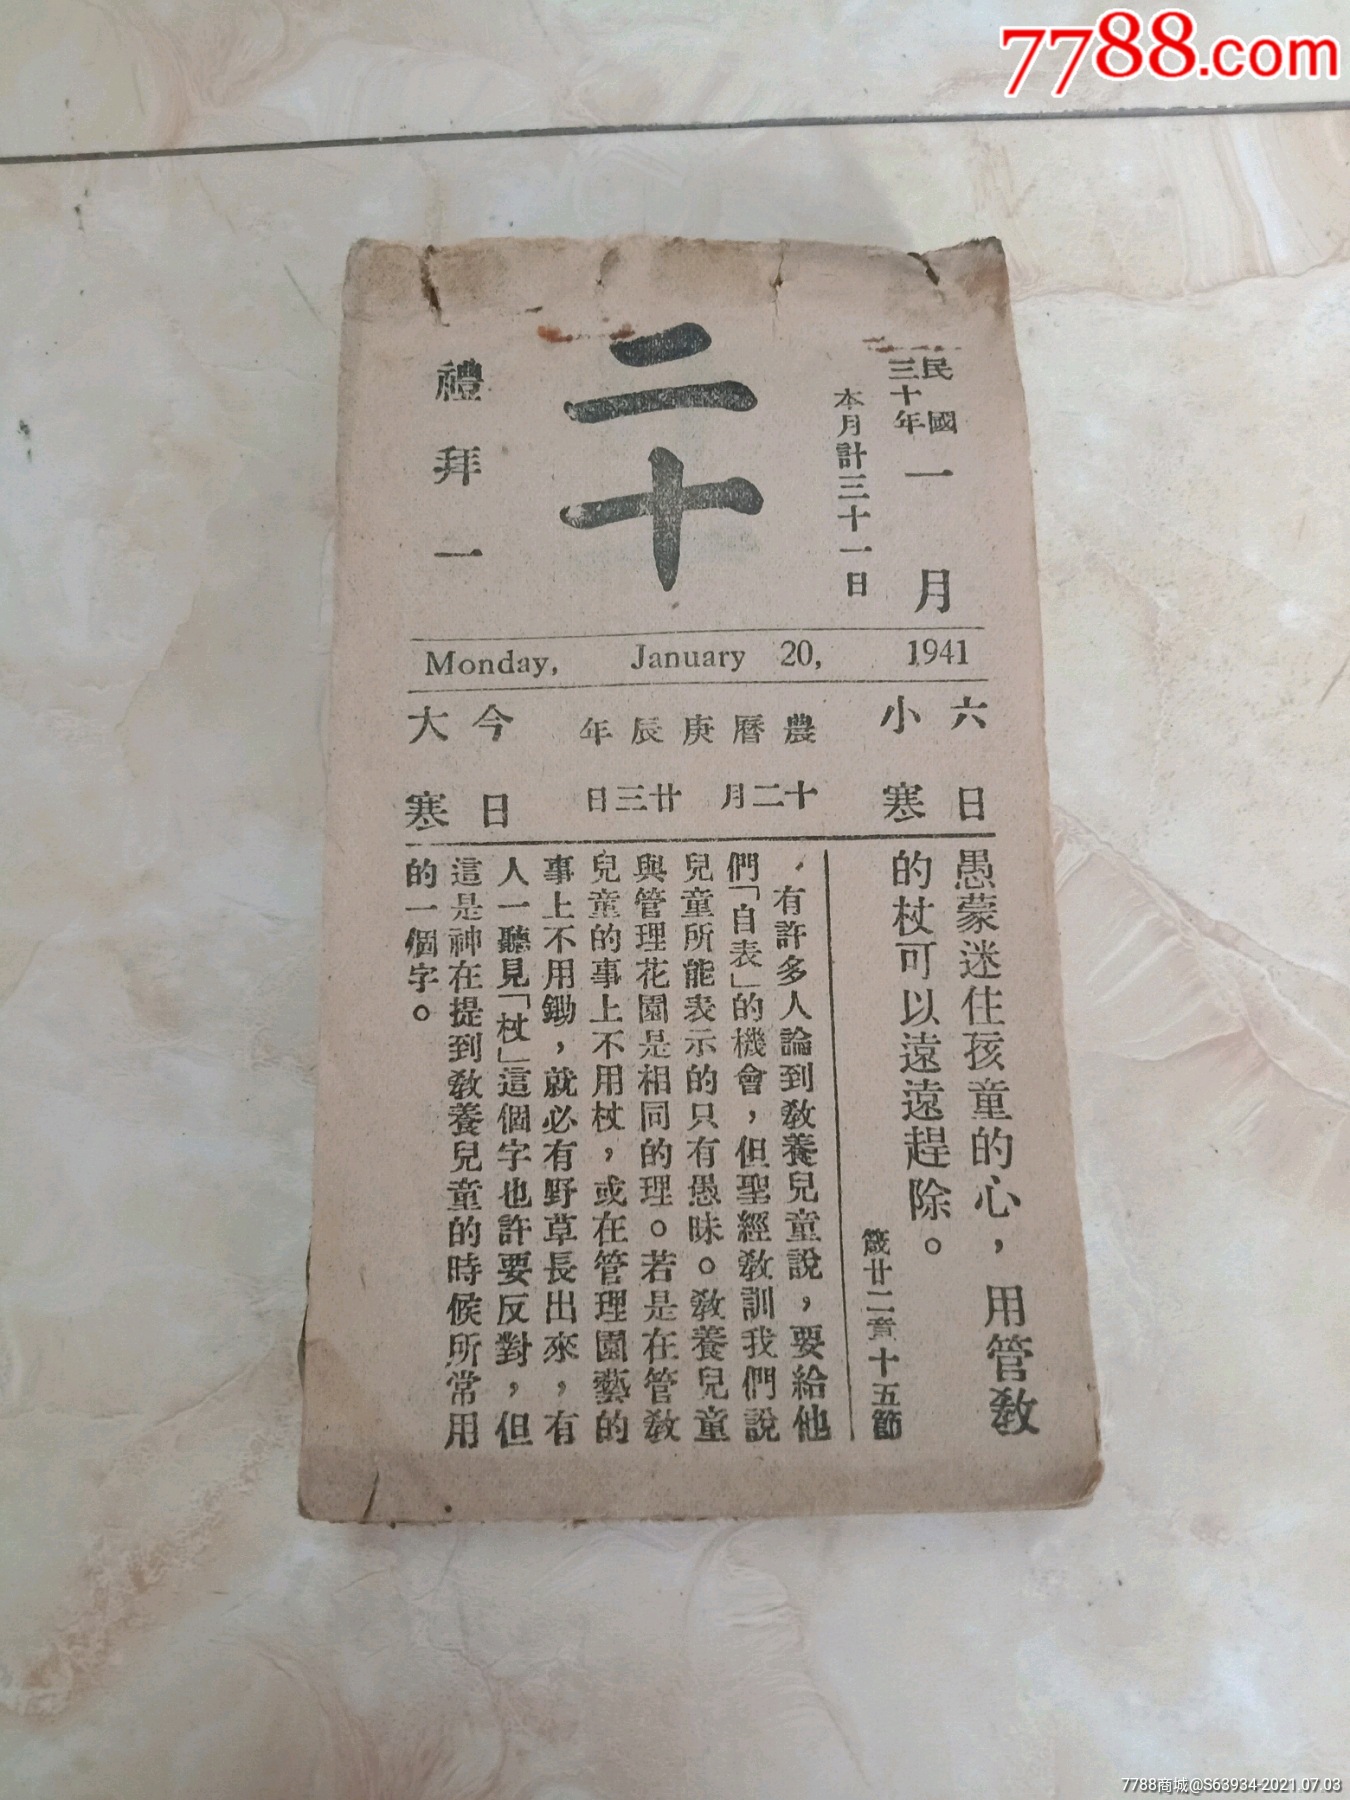 7788.com
民國
三十年
一月
本月計三十一日
二十
禮拜一
Monday, January 20, 1941
六日
小寒
農曆庚辰年
十二月廿三日
今日
大寒
愚蒙迷住孩童的心，用管教
的杖可以遠遠趕除。
箴廿二章十五節
有許多人論到教養兒童說，要給他
們「自表」的機會，但聖經教訓我們說
兒童所能表示的只有愚昧。教養兒童
與管理花園是相同的理。若是在管教
兒童的事上不用杖，或在管理園藝的
事上不用鋤，就必有野草長出來，有
人一聽見「杖」這個字也許要反對，但
這是神在提到教養兒童的時候所常用
的一個字。
7788商城@S63934-2021.07.03